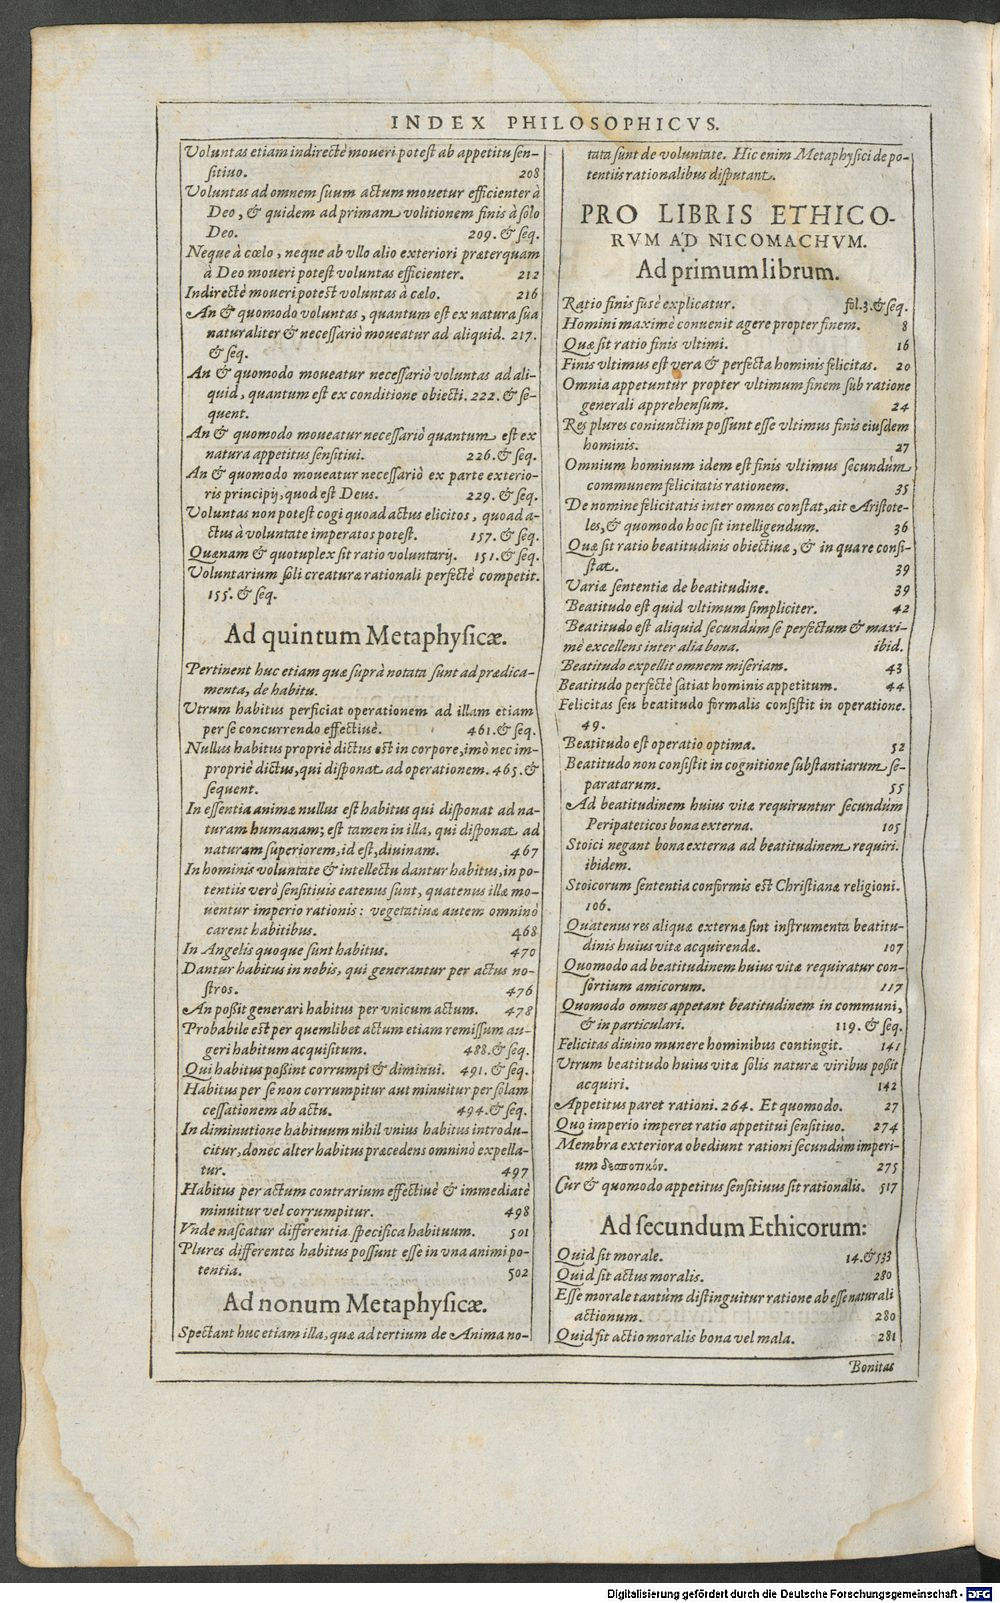 INDEX PHILOSOPHICVS.
Voluntas etiam indirectè moueri potest ab appetitu sen-
sitiuo. 208
Voluntas ad omnem suum actum mouetur efficienter à
Deo, & quidem ad primam volitionem finis à solo
Deo. 209. & seq.
Neque à cœlo, neque ab vllo alio exteriori præterquam
à Deo moueri potest voluntas efficienter. 212
Indirectè moueri potest voluntas à cœlo. 216
An & quomodo voluntas, quantum est ex natura sua
naturaliter & necessariò moueatur ad aliquid. 217.
& seq.
An & quomodo moueatur necessariò voluntas ad ali-
quid, quantum est ex conditione obiecti. 222. & se-
quent.
An & quomodo moueatur necessariò quantum est ex
natura appetitus sensitiui. 226. & seq.
An & quomodo moueatur necessariò ex parte exterio-
ris principij, quod est Deus. 229. & seq.
Voluntas non potest cogi quoad actus elicitos, quoad a-
ctus à voluntate imperatos potest. 157. & seq.
Quænam & quotuplex sit ratio voluntarij. 151. & seq.
Voluntarium soli creaturæ rationali perfectè competit.
155. & seq.
Ad quintum Metaphysicæ.
Pertinent huc etiam quæ suprà notata sunt ad prædica-
menta, de habitu.
Vtrum habitus perficiat operationem ad illam etiam
per se concurrendo effectiuè. 461. & seq.
Nullus habitus propriè dictus est in corpore, imò nec im-
propriè dictus, qui disponat ad operationem. 465. &
sequent.
In essentia animæ nullus est habitus qui disponat ad na-
turam humanam; est tamen in illa, qui disponat ad
naturam superiorem, id est, diuinam. 467
In hominis voluntate & intellectu dantur habitus, in po-
tentiis verò sensitiuis eatenus sunt, quatenus illæ mo-
uentur imperio rationis: vegetatiuæ autem omninò
carent habitibus. 468
In Angelis quoque sunt habitus. 470
Dantur habitus in nobis, qui generantur per actus no-
stros. 476
An possit generari habitus per vnicum actum. 478
Probabile est per quemlibet actum etiam remissum au-
geri habitum acquisitum. 488. & seq.
Qui habitus possint corrumpi & diminui. 491. & seq.
Habitus per se non corrumpitur aut minuitur per solam
cessationem ab actu. 494. & seq.
In diminutione habituum nihil vnius habitus introdu-
citur, donec alter habitus præcedens omninò expella-
tur. 497
Habitus per actum contrarium effectiuè & immediatè
minuitur vel corrumpitur. 498
Vnde nascatur differentia specifica habituum. 501
Plures differentes habitus possunt esse in vna animi po-
tentia. 502
Ad nonum Metaphysicæ.
Spectant huc etiam illa, quæ ad tertium de Anima no-
tata sunt de voluntate. Hic enim Metaphysici de po-
tentiis rationalibus disputant.
PRO LIBRIS ETHICO-
RVM AD NICOMACHVM.
Ad primum librum.
Ratio finis fusè explicatur. fol. 3. & seq.
Homini maximè conuenit agere propter finem. 8
Quæ sit ratio finis vltimi. 16
Finis vltimus est vera & perfecta hominis felicitas. 20
Omnia appetuntur propter vltimum finem sub ratione
generali apprehensum. 24
Res plures coniunctim possunt esse vltimus finis eiusdem
hominis. 27
Omnium hominum idem est finis vltimus secundùm
communem felicitatis rationem. 35
De nomine felicitatis inter omnes constat, ait Aristote-
les, & quomodo hoc sit intelligendum. 36
Quæ sit ratio beatitudinis obiectiuæ, & in qua re consi-
stat. 39
Variæ sententiæ de beatitudine. 39
Beatitudo est quid vltimum simpliciter. 42
Beatitudo est aliquid secundùm se perfectum & maxi-
mè excellens inter alia bona. ibid.
Beatitudo expellit omnem miseriam. 43
Beatitudo perfectè satiat hominis appetitum. 44
Felicitas seu beatitudo formalis consistit in operatione.
49.
Beatitudo est operatio optima. 52
Beatitudo non consistit in cognitione substantiarum se-
paratarum. 55
Ad beatitudinem huius vitæ requiruntur secundùm
Peripateticos bona externa. 105
Stoici negant bona externa ad beatitudinem requiri.
ibidem.
Stoicorum sententia conformis est Christianæ religioni.
106.
Quatenus res aliquæ externæ sint instrumenta beatitu-
dinis huius vitæ acquirendæ. 107
Quomodo ad beatitudinem huius vitæ requiratur con-
sortium amicorum. 117
Quomodo omnes appetant beatitudinem in communi,
& in particulari. 119. & seq.
Felicitas diuino munere hominibus contingit. 141
Vtrum beatitudo huius vitæ solis naturæ viribus possit
acquiri. 142
Appetitus paret rationi. 264. Et quomodo. 27
Quo imperio imperet ratio appetitui sensitiuo. 274
Membra exteriora obediunt rationi secundùm imperi-
um δεσποτικόν. 275
Cur & quomodo appetitus sensitiuus sit rationalis. 517
Ad secundum Ethicorum:
Quid sit morale. 14. & 533
Quid sit actus moralis. 280
Esse morale tantùm distinguitur ratione ab esse naturali
actionum. 280
Quid sit actio moralis bona vel mala. 281
Bonitas
Digitalisierung gefördert durch die Deutsche Forschungsgemeinschaft - DFG